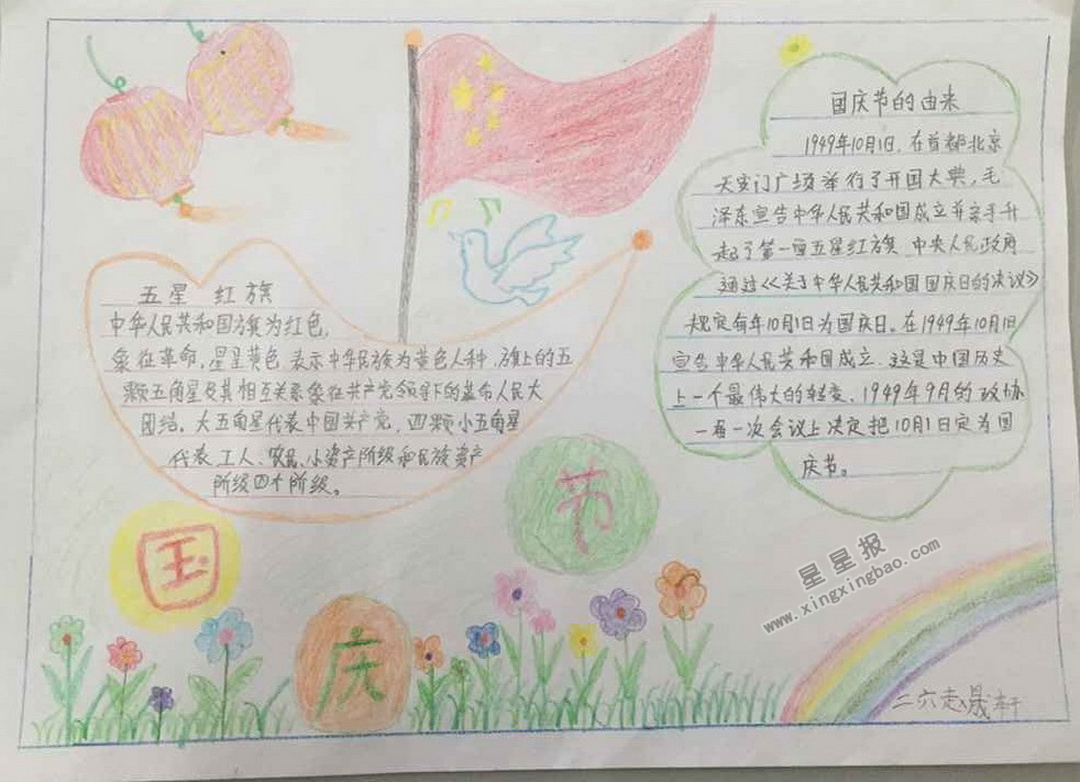 五星 红旗
中华人民共和国旗为红色,
象征革命,星呈黄色,表示中华民族为黄色人种,旗上的五
颗五角星及其相互关系象征共产党领导下的革命人民大
团结。大五角星代表中国共产党,四颗小五角星
代表工人、农民、小资产阶级和民族资产
阶级四个阶级。
国庆节的由来
1949年10月1日,在首都北京
天安门广场举行了开国大典,毛
泽东宣告中华人民共和国成立并亲手升
起了第一面五星红旗 中央人民政府
通过《关于中华人民共和国国庆日的决议》
规定每年10月1日为国庆日。在1949年10月1日
宣告中华人民共和国成立.这是中国历史
上一个最伟大的转变、1949年9月的政协
一届一次会议上决定把10月1日定为国
庆节。
国
庆
节
星星报
www.xingxingbao.com
二六赵晟轩